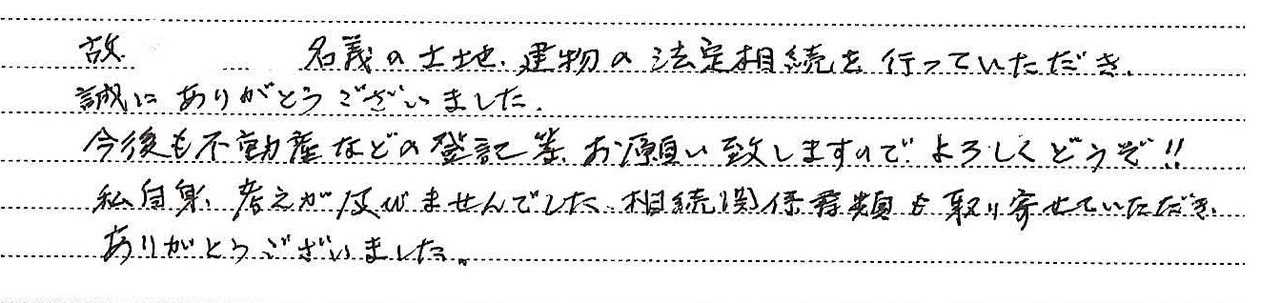 故 名義の土地、建物の法定相続を行っていただき、
誠にありがとうございました。
今後も不動産などの登記等、お願い致しますのでよろしくどうぞ!!
私自身、考えが及びませんでした、相続関係書類も取り寄せていただき、
ありがとうございました。